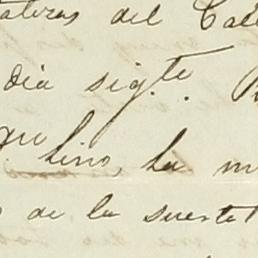 del Cal
dia sigte.
Lino, la m
de la suerte